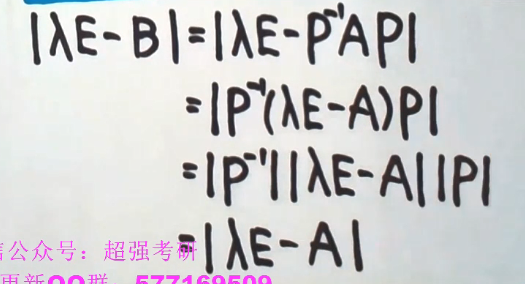 |λE-B|=|λE-P⁻¹AP|
=|P⁻¹(λE-A)P|
=|P⁻¹||λE-A||P|
=|λE-A|
信公众号：超强考研
更新QQ群 577169509